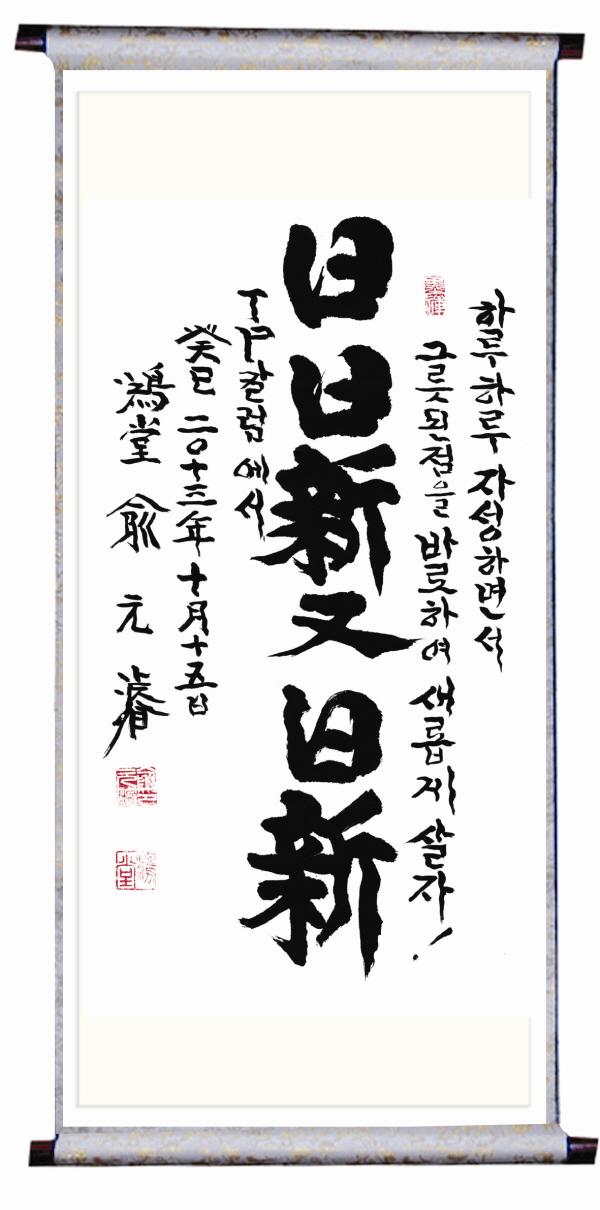 하루하루 자성하면서
그릇된 점을 바로하여 새롭게 살자!
日日新又日新
TP칼럼에서
癸巳 二〇十三年 十月 十五日
鴻堂 兪元濬